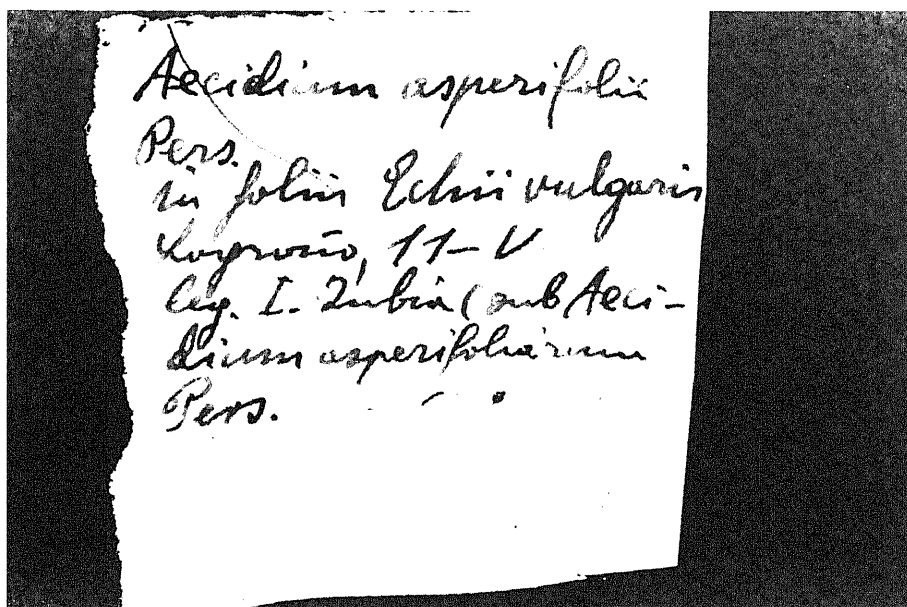 Aecidium asperifolii
Pers.
in foliis Echii vulgaris
Logroño, 11-V
leg. I. Zubia (sub Aeci-
dium asperifoliarum
Pers.